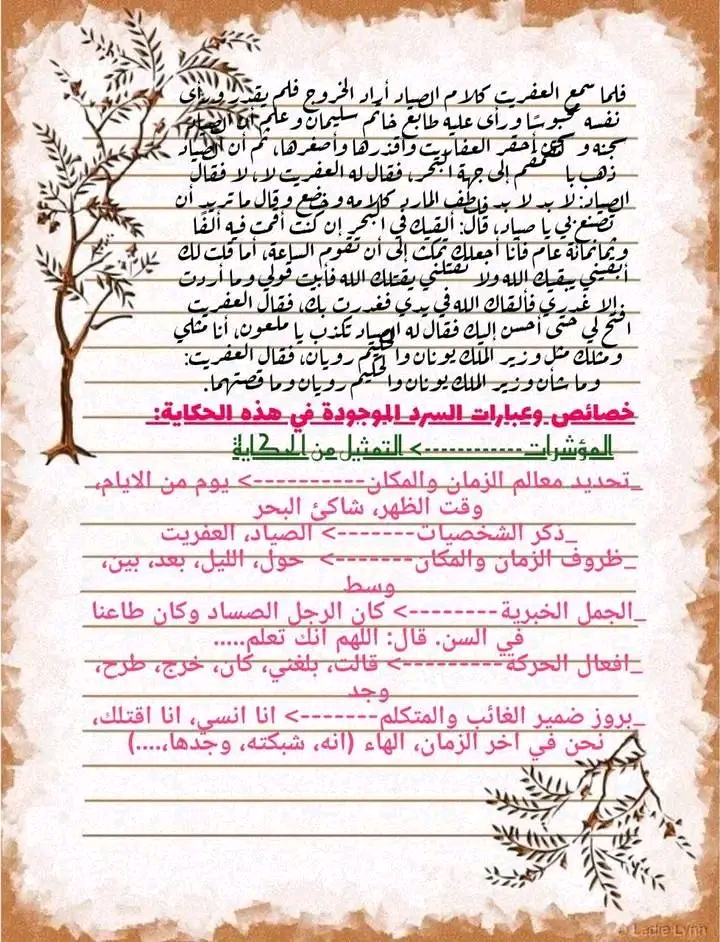 فلما سمع العفريت كلام الصياد أراد الخروج فلم يقدر ورأى
نفسه محبوسًا ورأى عليه طابع خاتم سليمان وعلم أن الصياد
سجنه و أحقر العفاريت وأقذرها وأصغرها، ثم أن الصياد
ذهب با لقمقم إلى جهة البحر، فقال له العفريت لا، لا فقال
الصياد: لا بد لا بد فلطف المارد كلامه وخضع وقال ما تريد أن
تصنع بي يا صياد، قال: ألقيك في البحر إن كنت أقمت فيه ألفًا
وثمانمائة عام فأنا أجعلك تمكث إلى أن تقوم الساعة، أما قلت لك
أبقيني يبقيك الله ولا تقتلني يقتلك الله فأبيت قولي وما أردت
إلا غدري فألقاك الله في يدي فغدرت بك، فقال العفريت
افتح لي حتى أحسن إليك فقال له الصياد تكذب يا ملعون، أنا مثلي
ومثلك مثل وزير الملك يونان والحكيم رويان، فقال العفريت:
وما شأن وزير الملك يونان والحكيم رويان وما قصتهما.
خصائص وعبارات السرد الموجودة في هذه الحكاية:
المؤشرات------------> التمثيل من الحكاية
_تحديد معالم الزمان والمكان----------> يوم من الايام،
وقت الظهر، شاكئ البحر
_ذكر الشخصيات-------> الصياد، العفريت
_ظروف الزمان والمكان-------> حول، الليل، بعد، بين،
وسط
_الجمل الخبرية--------> كان الرجل الصساد وكان طاعنا
في السن. قال: اللهم انك تعلم.....
_افعال الحركة---------> قالت، بلغني، كان، خرج، طرح،
وجد
_بروز ضمير الغائب والمتكلم-------> انا انسي، انا اقتلك،
نحن في اخر الزمان، الهاء (انه، شبكته، وجدها،....)
Ladie Lynn